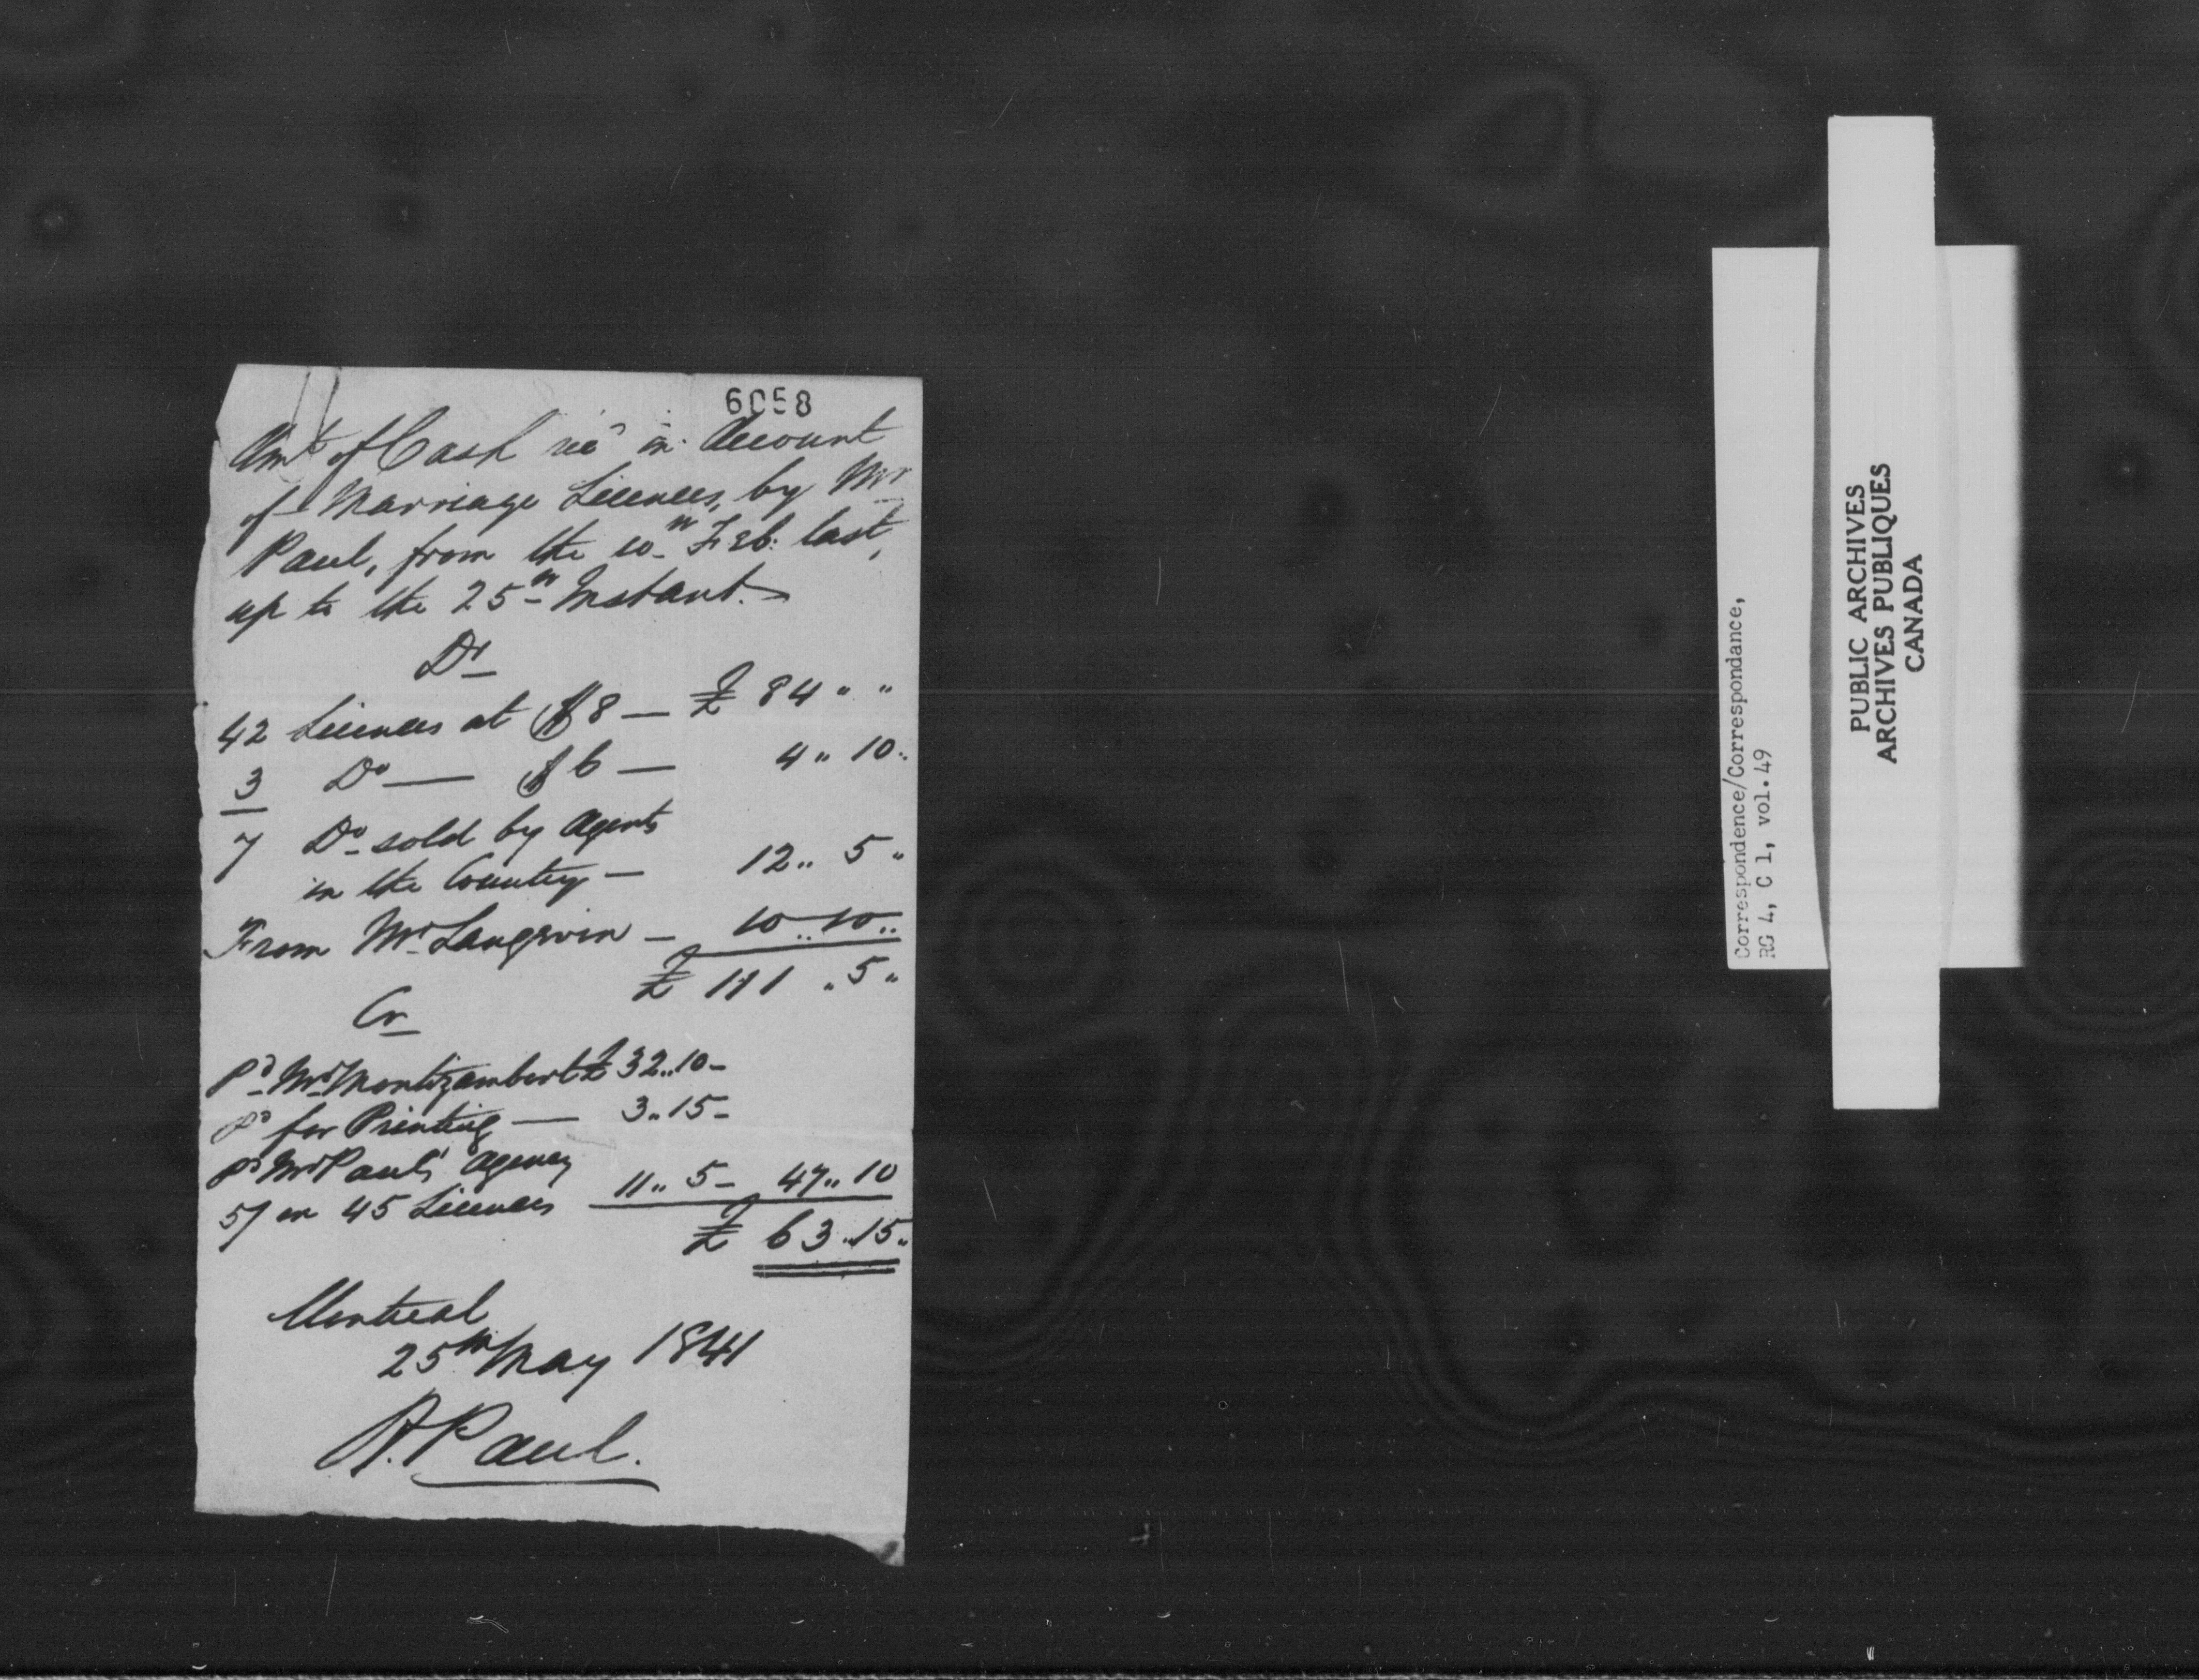 6058
Amt of Cash recd on Account
of Marriage Licences, by Mr
Paul, from the 10th Feb: last,
up to the 25th Instant.
Dr
42 Licences at $8 — £ 84 " "
3 Do — $6 — 4 " 10 "
7 Do sold by Agents
in the Country — 12 " 5 "
From Mr Langevin — 10 " 10 "
£ 111 " 5 "
Cr
Pd Mr Montizambert £ 32 " 10 -
Pd for Printing — 3 " 15 -
Pd Mr Paul's Agency
5/ on 45 Licences 11 " 5 - 47 " 10
£ 63 " 15 "
Montreal
25th May 1841
A. Paul.
Correspondence/Correspondance,
RG 4, C 1, vol. 49
PUBLIC ARCHIVES
ARCHIVES PUBLIQUES
CANADA